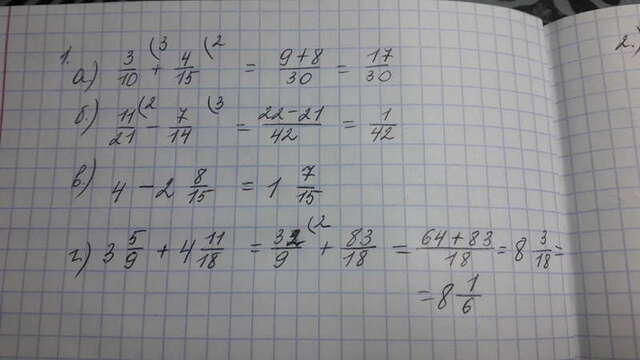 1. а) 3/10 (3 + 4/15 (2 = 9+8/30 = 17/30
б) 11/21 (2 - 7/14 (3 = 22-21/42 = 1/42
в) 4 - 2 8/15 = 1 7/15
г) 3 5/9 + 4 11/18 = 32/9 (2 + 83/18 = 64+83/18 = 8 3/18 =
= 8 1/6
2.